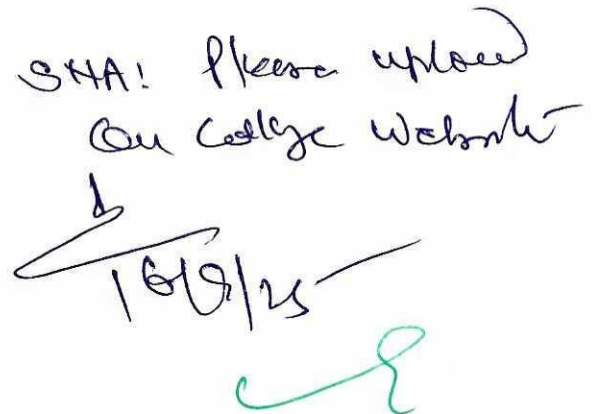 SHA! Please upload
On College Website
16/9/25